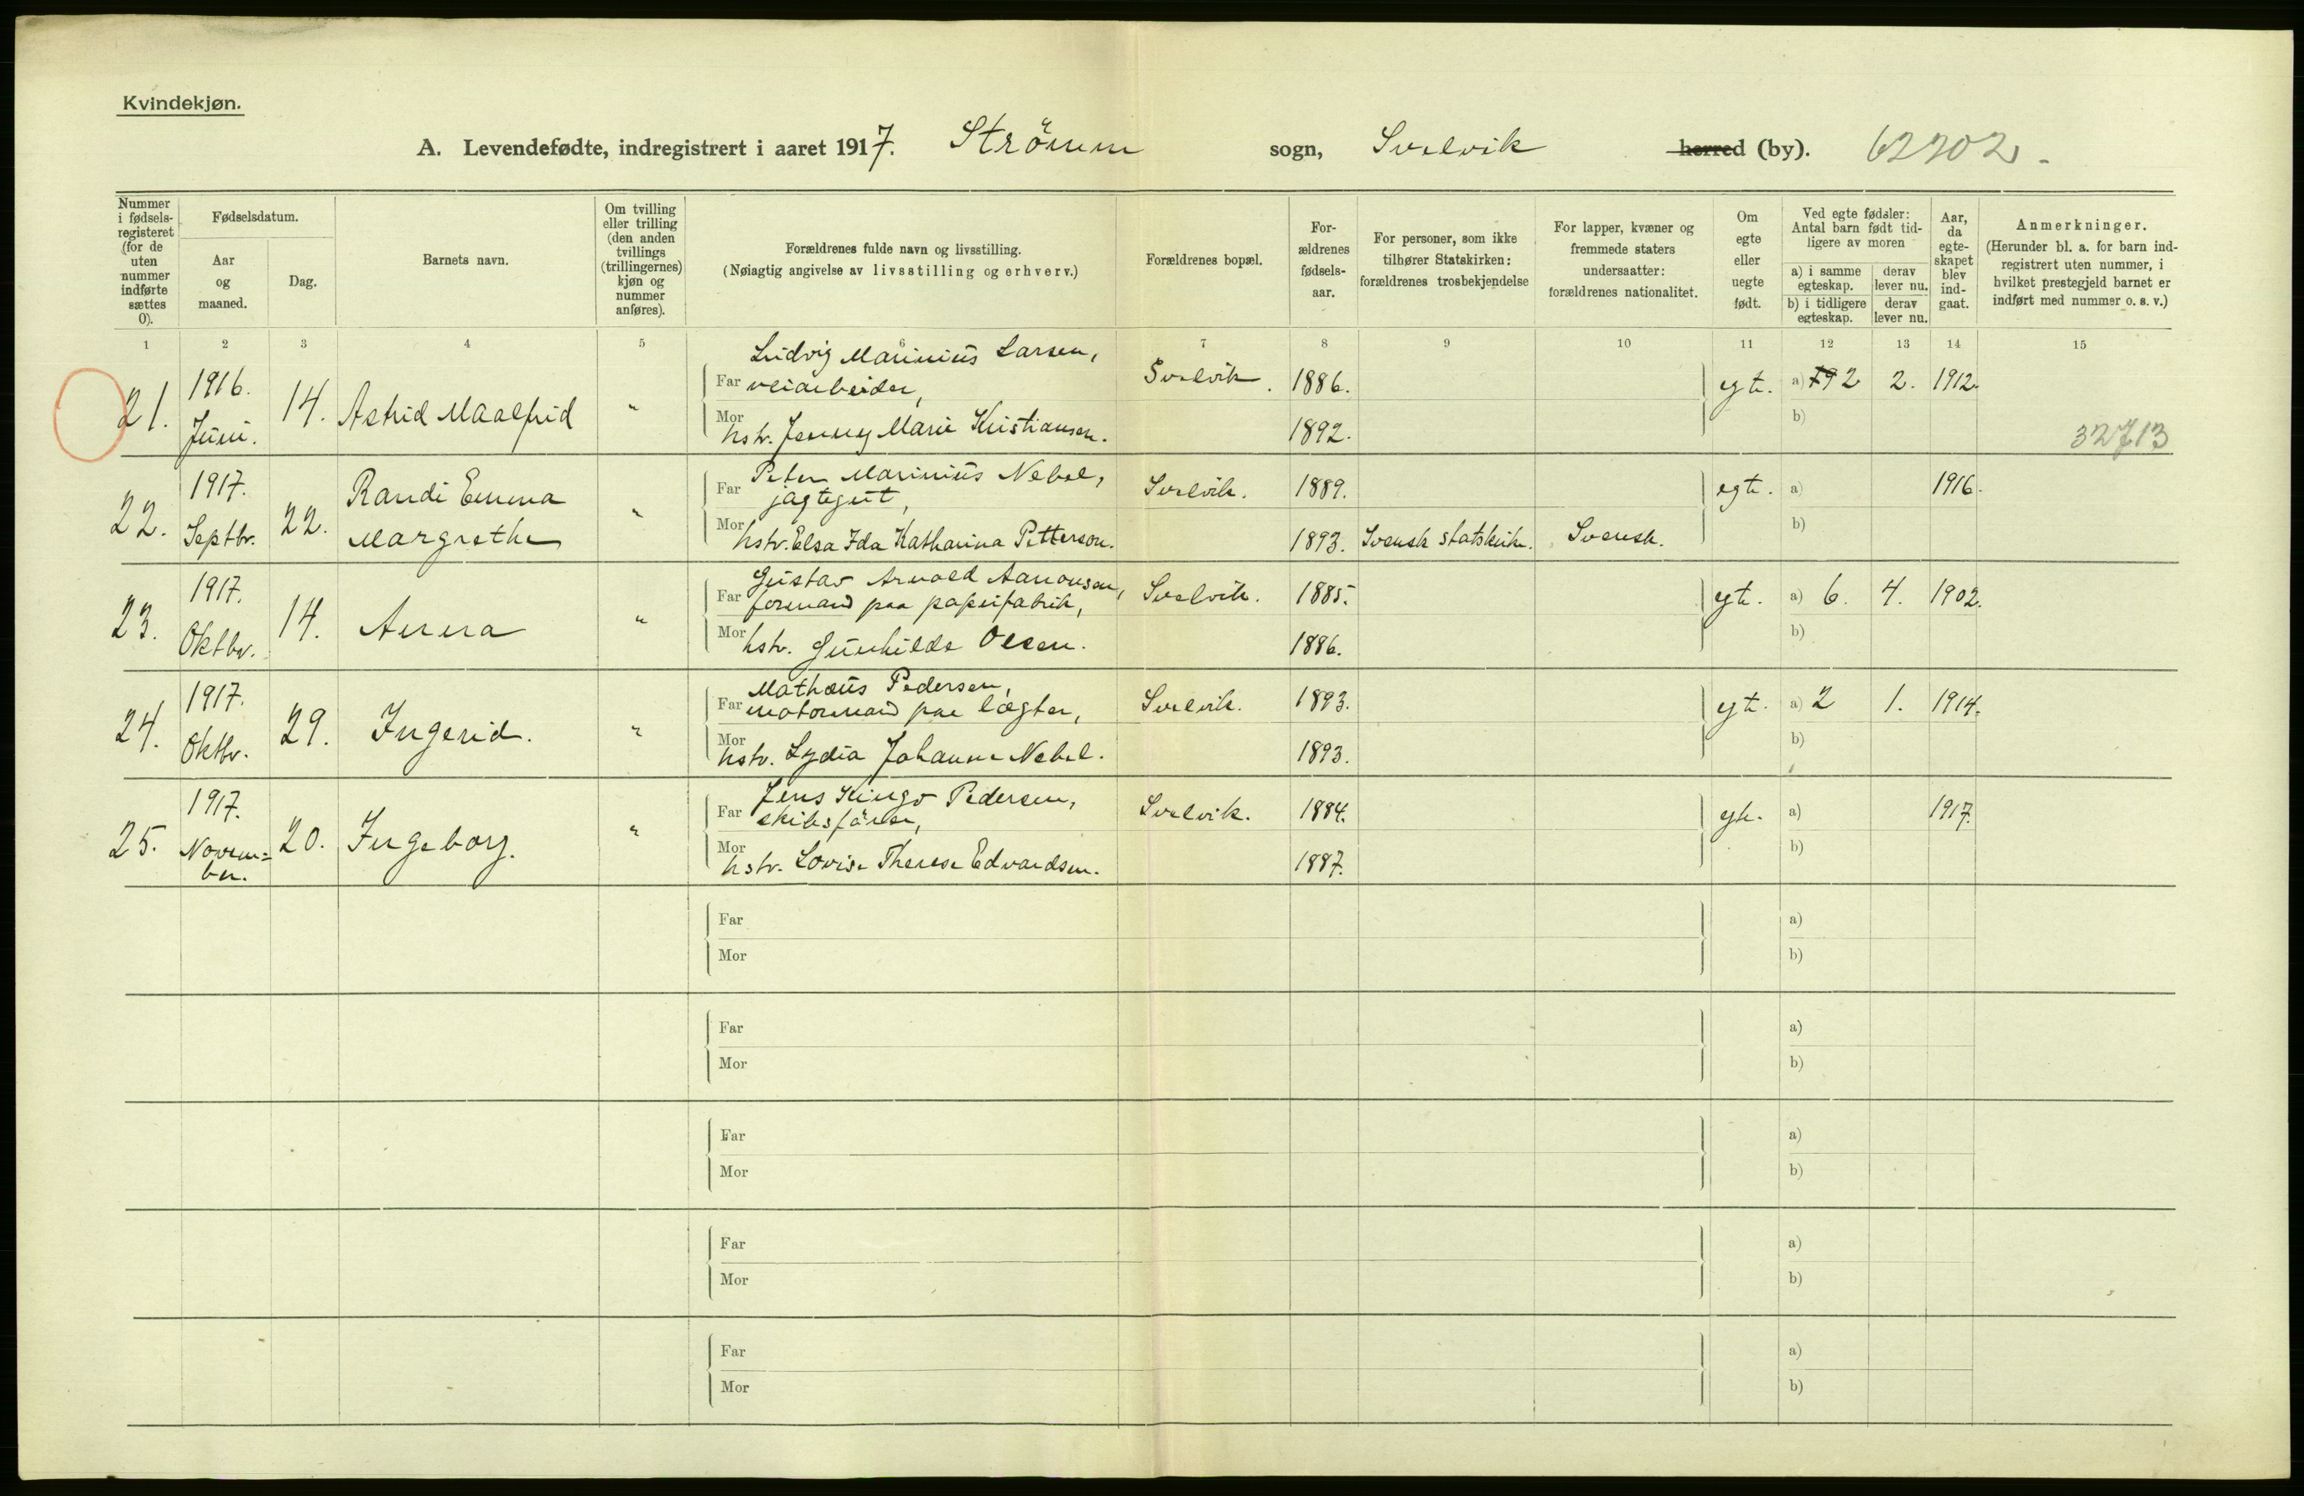 Kvindekjøn.
A. Levendefødte, indregistrert i aaret 1917. Strömm sogn, Svelvik herred (by). 62202.
Nummer i fødsels-registeret (for de uten nummer indførte sættes 0).
Fødselsdatum.
Aar og maaned.
Dag.
Barnets navn.
Om tvilling eller trilling (den anden tvillings (trillingernes) kjøn og nummer anføres).
Forældrenes fulde navn og livsstilling.
(Nøiagtig angivelse av livsstilling og erhverv.)
Forældrenes bopæl.
For-ældrenes fødsels-aar.
For personer, som ikke tilhører Statskirken: forældrenes trosbekjendelse
For lapper, kvæner og fremmede staters undersaatter: forældrenes nationalitet.
Om egte eller uegte født.
Ved egte fødsler: Antal barn født tid-ligere av moren
a) i samme egteskap.
derav lever nu.
b) i tidligere egteskap.
derav lever nu.
Aar, da egte-skapet blev ind-gaat.
Anmerkninger.
(Herunder bl. a. for barn ind-registrert uten nummer, i hvilket prestegjeld barnet er indført med nummer o. s. v.)
1 2 3 4 5 6 7 8 9 10 11 12 13 14 15
21. 1916. Juni. 14. Astrid Maalfrid "
Far Ludvig Marinius Larsen, veiarbeider, Svelvik. 1886. egte. a) 2 2. 1912.
Mor hstr. Jenny Marie Kristiansen. 1892. b) 32713
22. 1917. Septbr. 22. Randi Emma Margrethe "
Far Peter Marinius Nebel, jagtegut, Svelvik. 1889. egte. a) 1916.
Mor hstr. Elsa Ida Katharina Petterson. 1893. Svensk statskirke. Svensk. b)
23. 1917. Oktbr. 14. Anna "
Far Gustav Arnold Aanonsen, formand paa papirfabrik, Svelvik. 1885. egte. a) 6. 4. 1902.
Mor hstr. Gunhilde Olsen. 1886. b)
24. 1917. Oktbr. 29. Ingerid. "
Far Mathæus Pedersen, motormand paa lægter, Svelvik. 1893. egte. a) 2 1. 1914.
Mor hstr. Lydia Johanne Nebel. 1893. b)
25. 1917. Novem=ber. 20. Ingeborg. "
Far Jens Kingo Pedersen, skibsförer, Svelvik. 1884. egte. a) 1917.
Mor hstr. Lovise Therese Edvardsen. 1887. b)
Far a)
Mor b)
Far a)
Mor b)
Far a)
Mor b)
Far a)
Mor b)
Far a)
Mor b)